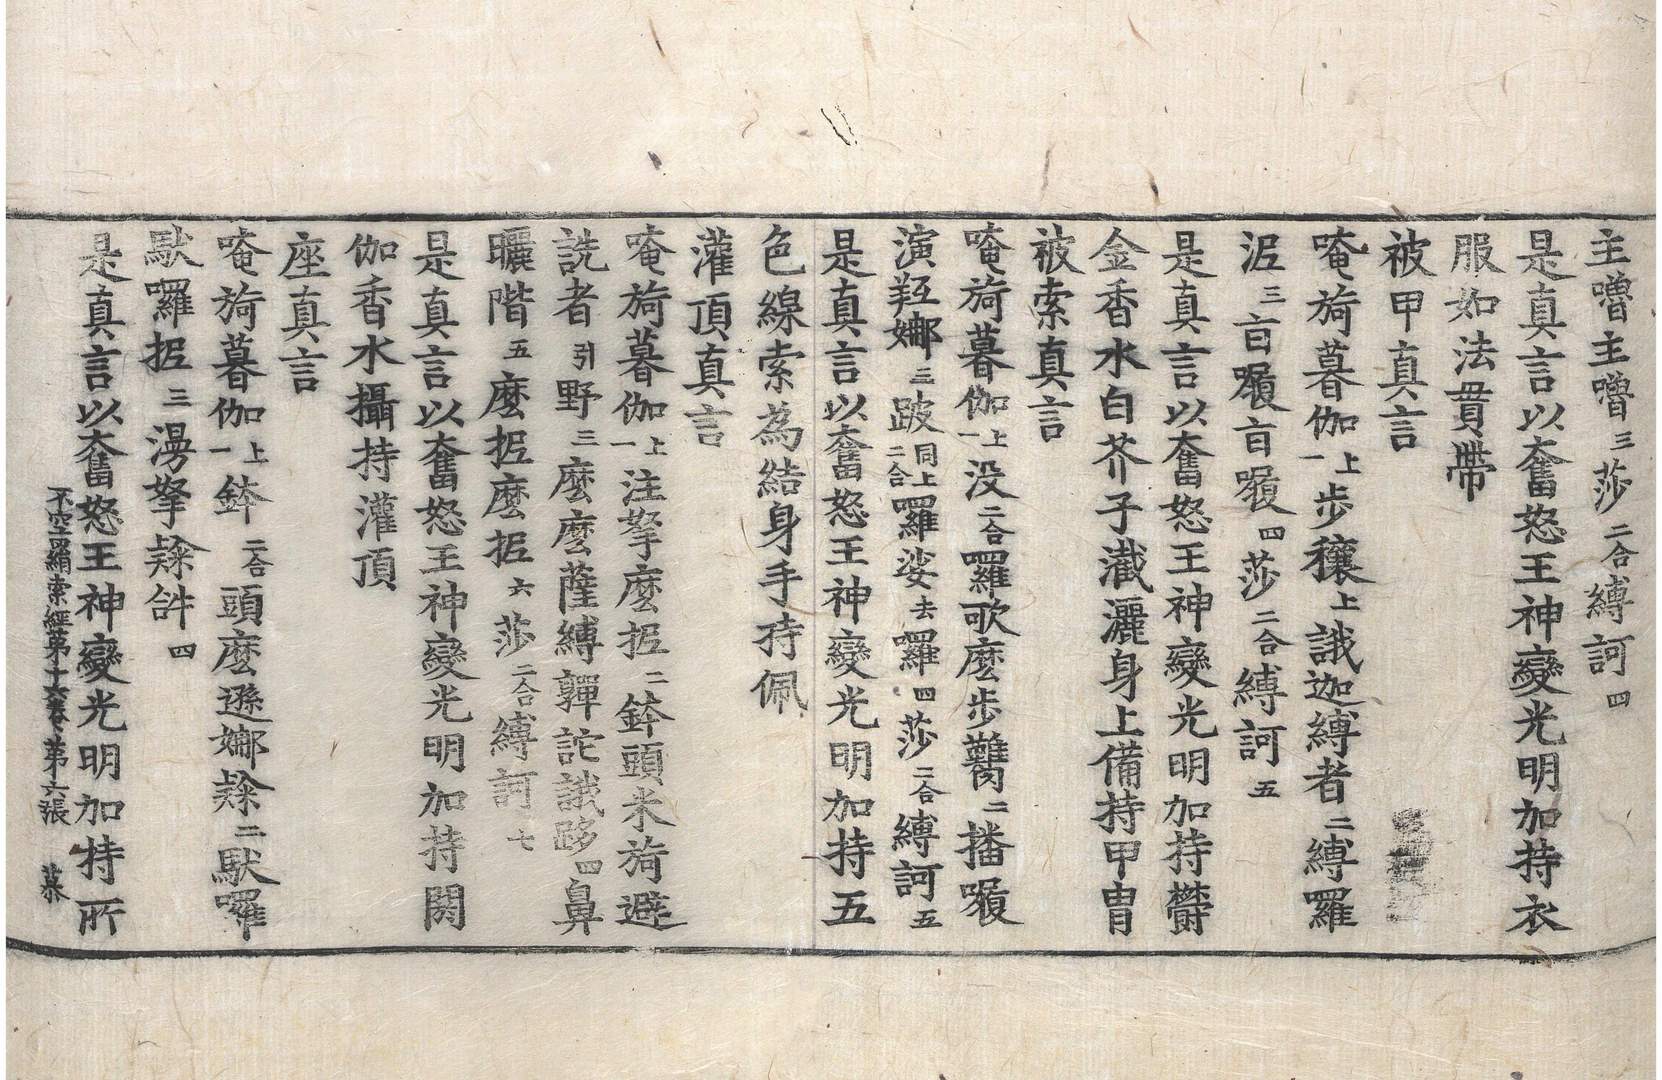 主嚕主嚕三莎二合縛訶四
是真言以奮怒王神變光明加持衣
服如法貫帶
被甲真言
唵旖暮伽上一步穰上誐迦縛者二縛羅
泥三亶囑亶囑四莎二合縛訶五
是真言以奮怒王神變光明加持欝
金香水白芥子灑灑身上備持甲冑
被索真言
唵旖暮伽上一没二合羅歌麼步二播
演娜三跛同上二合羅娑去囉四莎二合縛訶五
是真言以奮怒王神變光明加持五
色線索為結身手持佩
灌頂真言
唵旖暮伽上一注拏麼抳二鉢頭米旖避
詵者引野三麼麼薩縛嚲詑誐跢四鼻
曬階五麼抳麼抳六莎二合縛訶七
是真言以奮怒王神變光明加持閼
伽香水攝持灌頂
座真言
唵旖暮伽上一鉢二合頭麼遜娜二馱囉
馱囉抳三漫拏𤙖四
是真言以奮怒王神變光明加持所
不空羂索經第十六卷第六張 慕